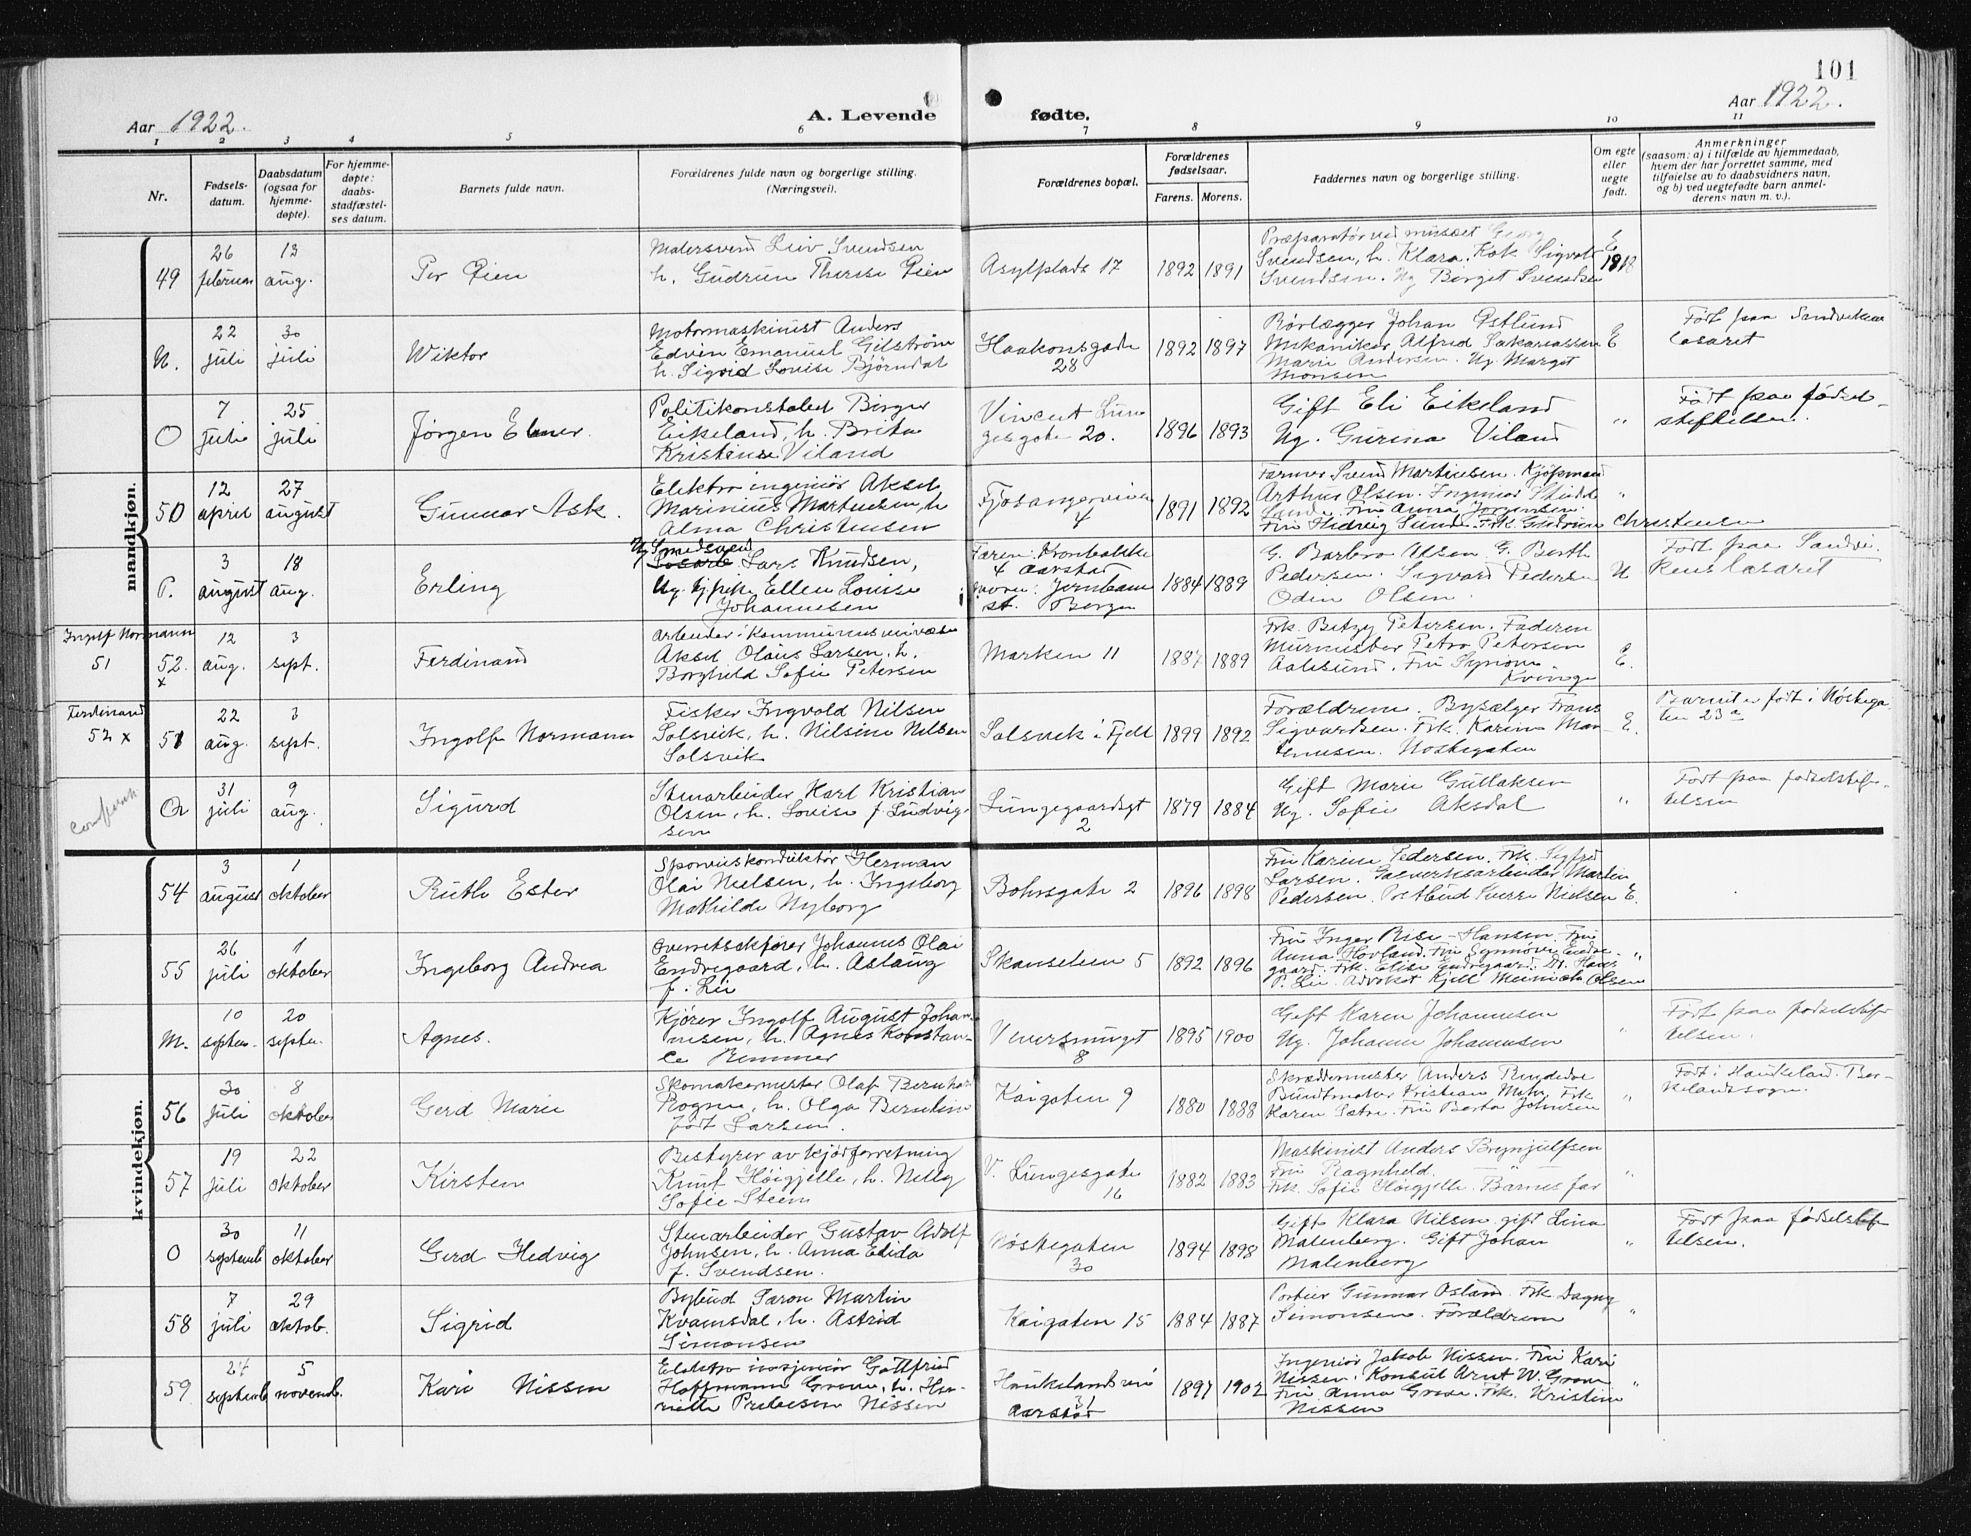 101
Aar 1922.
A. Levende fødte.
Aar 1922.
1 2 3 4 5 6 7 8 9 10 11
Nr.
Fødsels-
datum.
Daabsdatum
(ogsaa for
hjemme-
døpte).
For hjemme-
døpte:
daabs-
stadfæstel-
ses datum.
Barnets fulde navn.
Forældrenes fulde navn og borgerlige stilling.
(Næringsvei).
Forældrenes bopæl.
Forældrenes
fødselsaar.
Farens. Morens.
Faddernes navn og borgerlige stilling.
Om egte
eller
uegte
født.
Anmerkninger
(saasom: a) i tilfælde av hjemmedaab,
hvem der har forrettet samme, med
tilføielse av to daabsvidners navn,
og b) ved uegtefødte barn anmel-
derens navn m. v.).
mandkjøn.
49
26
februar
13
aug.
Per Øien
Malersvend Leiv Svendsen
h. Gudrun Therese Øien
Asylplads 17
1892 1891
Præparatør ved museet Georg
Svendsen, h. Klara. Kok Sigvald
Svendsen. Ug. Birgit Svendsen
E
1918
N.
22
juli
30
juli
Wiktor
Motormaskinist Anders
Edvin Emanuel Gilström
h. Sigrid Lovise Björndal
Haakonsgade
28
1892 1897
Rörlægger Johan Östlund
Mekaniker Alfred Sakariassen
Marie Andersen. Ug. Marget
Monsen
E
Født paa Sandviken
lasaret
O
7
juli
25
juli
Jørgen Elmer.
Politikonstabel Birger
Eikeland, h. Brita
Kristense Viland
Vincent Lun
gesgate 20.
1896 1893
Gift Eli Eikeland
Ug. Gurina Viland
"
Født paa fødsels-
stiftelsen.
50
12
april
27
august
Gunnar Ask.
Elektro ingeniør Aksel
Marinius Martinsen, h.
Alma Christensen
Fjøsangerveien
4
1891 1892
Farmer Svend Martinsen. Kjøpmand
Arthur Olsen. Ingeniør
Fru Anna Jørgensen.
Fru Hedvig Lund. Frk. Gudrun Christensen
"
P.
3
august
18
aug.
Erling
Ug. Smedsvend
Lars Knudsen,
Ug. Ellen Louise
Johannesen
Faren: Kronbakke
4 Aarstad
moren: Jernbane
st. Bergen
1884 1889
G. Barbro Olsen. G. Berth
Pedersen. Sigvard Pedersen
Oden Olsen.
U
Født paa Sandvi-
kens lasaret
Ingolf Normann
51
52.
x
12
aug.
3
sept.
Ferdinand
Arbeider i kommunens
Aksel Olaus Larsen, h.
Borghild Sofie Petersen
Marken 11
1887 1889
Frk. Betzy Petersen. Faderen
Murmester Petro Petersen
Aalesund. Fru Synove
Kvinge
E.
Ferdinand
52 x
51
22
aug.
3
sept.
Ingolf Normann
Fisker Ingvald Nilsen
Solsvik, h. Nilsine Nilsen
Solsvik
Solsvik i Fjell
1899 1892
Forældrene. Bysælger Frans
Sigvardsen. Frk. Karine Mar-
tinusen. Nostegaten
E.
Barnet er født i Nøstega-
ten 23a
Q
31
juli
9
aug.
Sigurd
Stenarbeider Karl Kristian
Olsen, h. Lovise f. Ludvig-
sen
Lungegaardsgt
2
1879 1884
Gift Marie Gullaksen
Ug. Sofie Aksdal
"
Født paa fødselstif-
telsen
kvindekjøn.
54
3
august
1
oktober
Ruth Ester
Sporveiskonduktør Herman
Olai Nielsen, h. Ingeborg
Mathilde Nyborg
Bohrsgate 2
1896 1898
Fru Karine Pedersen. Frk. Sigfrid
Larsen. Gasverksarbeider Martin
Pedersen. Postbud Sverre Nielsen
E.
55
26
juli
1
oktober
Ingeborg Andrea
Overretssakfører Johannes Olai
Endregaard, h. Aslaug
f. Lie
Skanselien 5
1892 1896
Fru Inger Hansen. Fru
Anna Hovland. Fru Synnøve Endre-
gaard. Frk. Elise Endregaard. Dr. Hans
P. Lie. Advokat Kjell Meinich Olsen
"
M.
10
septem-
20
septem-
Agnes.
Kjører Ingolf August Johan-
nesen, h. Agnes Konstan-
ce Remmer
Veversmuget
8
1895 1900
Gift Karen Johannesen
Ug. Johanne Johannesen
"
Født paa fødselstif-
telsen.
56
30
juli
8
oktober
Gerd Marie
Skomakermester Olaf Bernhard
Rogne, h. Olga Berntine
født Larsen.
Kaigaten 9
1880 1888
Skræddermester Anders
Bundtmaker Kristian Frk.
Karen Sætre. Fru Berta Johnsen
"
Født i Haukeland. Bir-
kelandssogn.
57
19
juli
22
oktober
Kirsten
Bestyrer av kjødforretning
Knut Høigjelle, h. Nelly
Sofie Steen
V. Lungesgate
16
1882 1883
Maskinist Anders Brynjulfsen
Fru Ragnheld.
Frk. Sofie Høigjelle. Barnets far
"
O
30
septemb
11
oktober
Gerd Hedvig
Stenarbeider Gustav Adolf
Johnsen, h. Anna Elida
f. Svendsen.
Nøstegaten
30
1894 1898
Gift Klara Nilsen. gift Lina
Malenberg. Gift Johan
Malenberg
"
Født paa fødselstif-
telsen.
58
7
juli
29
oktob.
Sigrid
Bybud Saron Martin
Kvamsdal, h. Astrid
Simonsen
Kaigaten 15
1884 1887
Portier Gunnar Osland. Frk. Dagny
Simonsen. Forældrene
"
59
24
septemb
5
novemb.
Kari Nissen
Elektro ingeniør Gottfried
Hoffmann Grove, h. Hen-
riette Prebensen Nissen
Haukelandsvei
31
Aarstad
1897 1902
Ingeniør Jakob Nissen. Fru Kari
Nissen. Konsul Arnt W. Grove
Fru Anna Grove. Frk. Kristine
Nissen
"